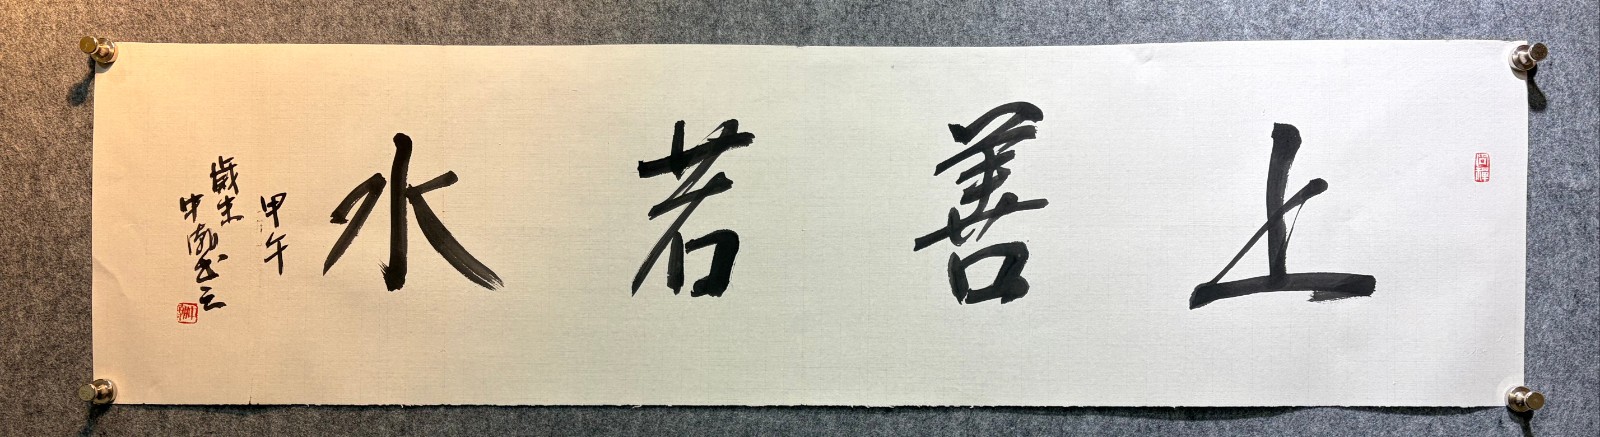 上善若水
甲午
歲末
中
書